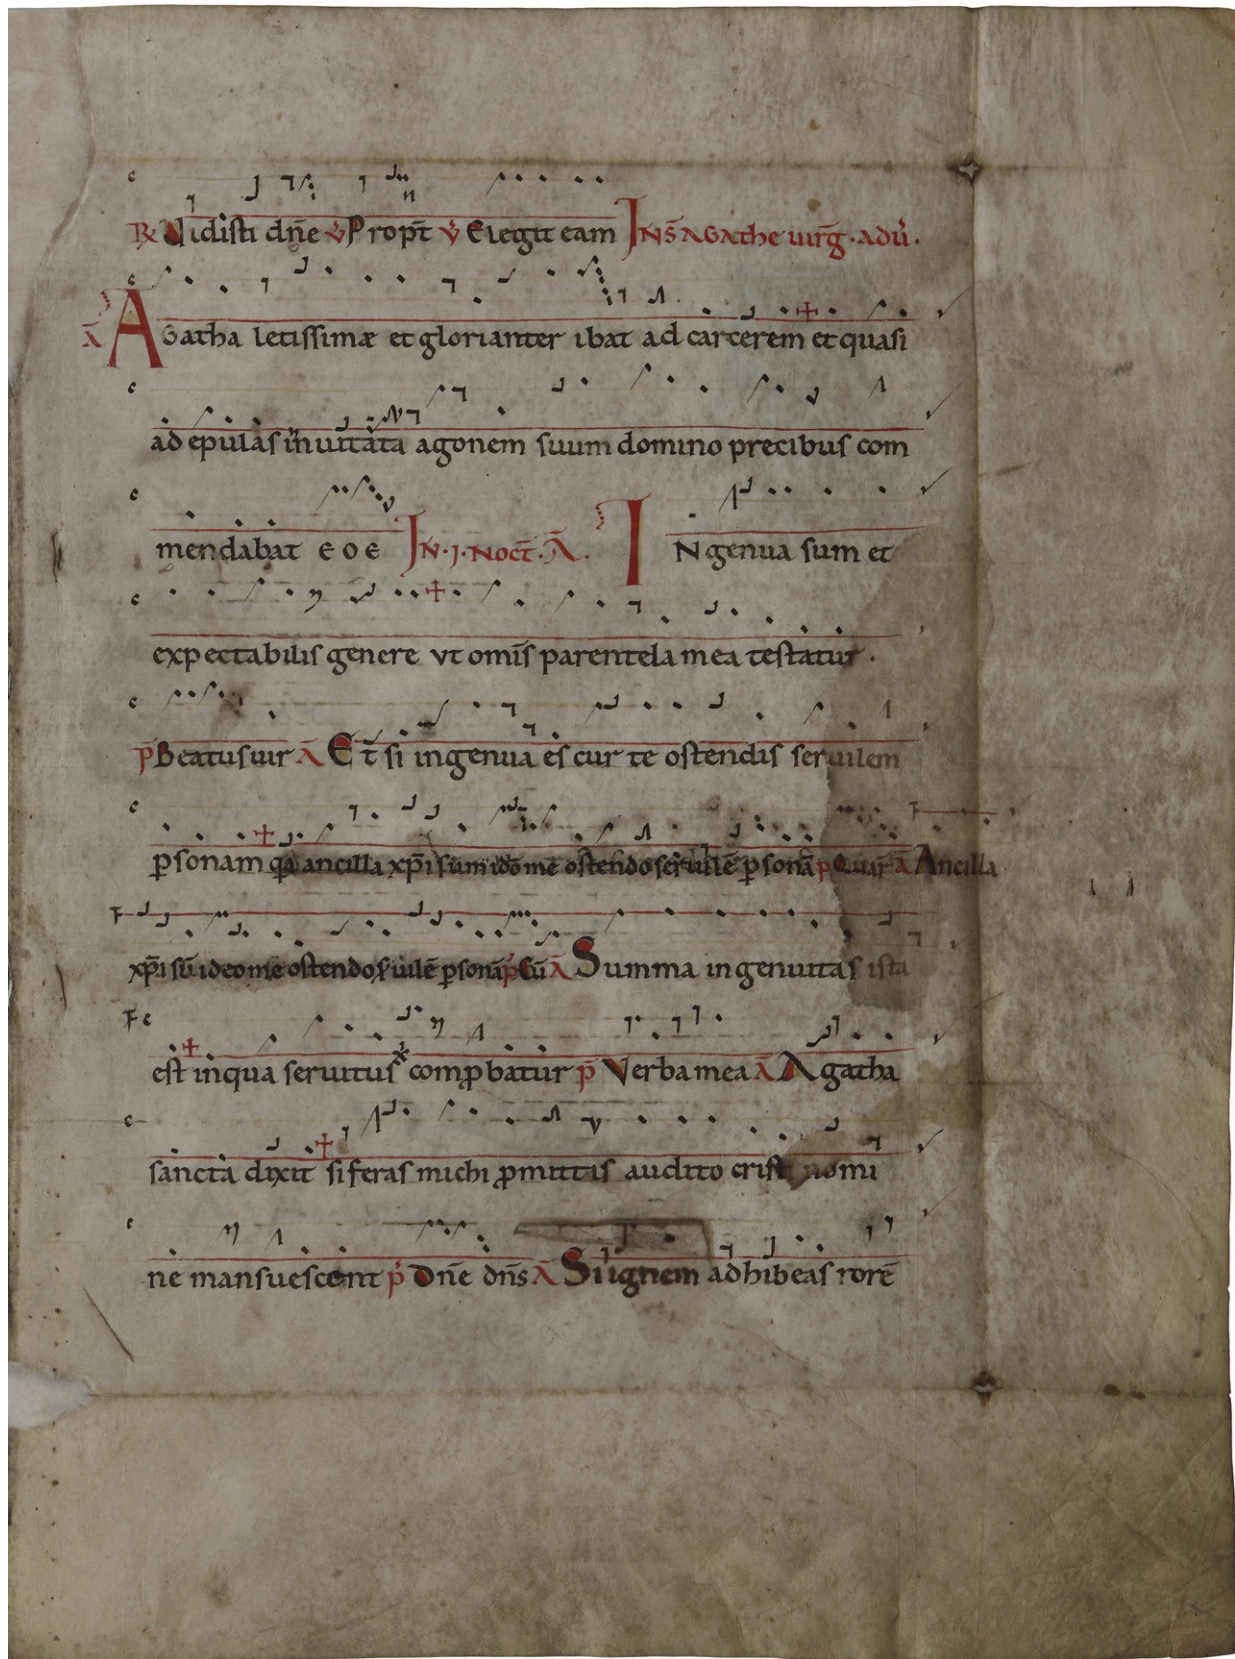 ℟ Vidisti dn̄e ℣ Propt̄ ℣ Elegit eam IN S̄ AGAthe uirḡ · adu̓.
Ā AGatha letissimæ et glorianter ibat ad carcerem et quasi
ad epulas inuitata agonem suum domino precibus com
mendabat e o e IN · J · Noct̄ · Ā . INgenua sum et
expectabilis genere vt omīs parentela mea testatur .
p̄ Beatus uir Ā Et̄ si ingenua es cur te ostendis seruilem
ꝑsonam ancilla xp̄i sum ido me ostendo seruilē ꝑsonā p̄ Ā Ancilla
xp̄i ideo me ostendo ꝑsonā p̓ Cū Ā Summa ingenuitas ista
est inqua seruitus comꝓbatur p̄ Verba mea Ā Agatha
sancta dixit si feras michi ꝓmittis audito cristi nomi
ne mansuescent p̓ Dn̄e dn̄s Ā Si ignem adhibeas rorē